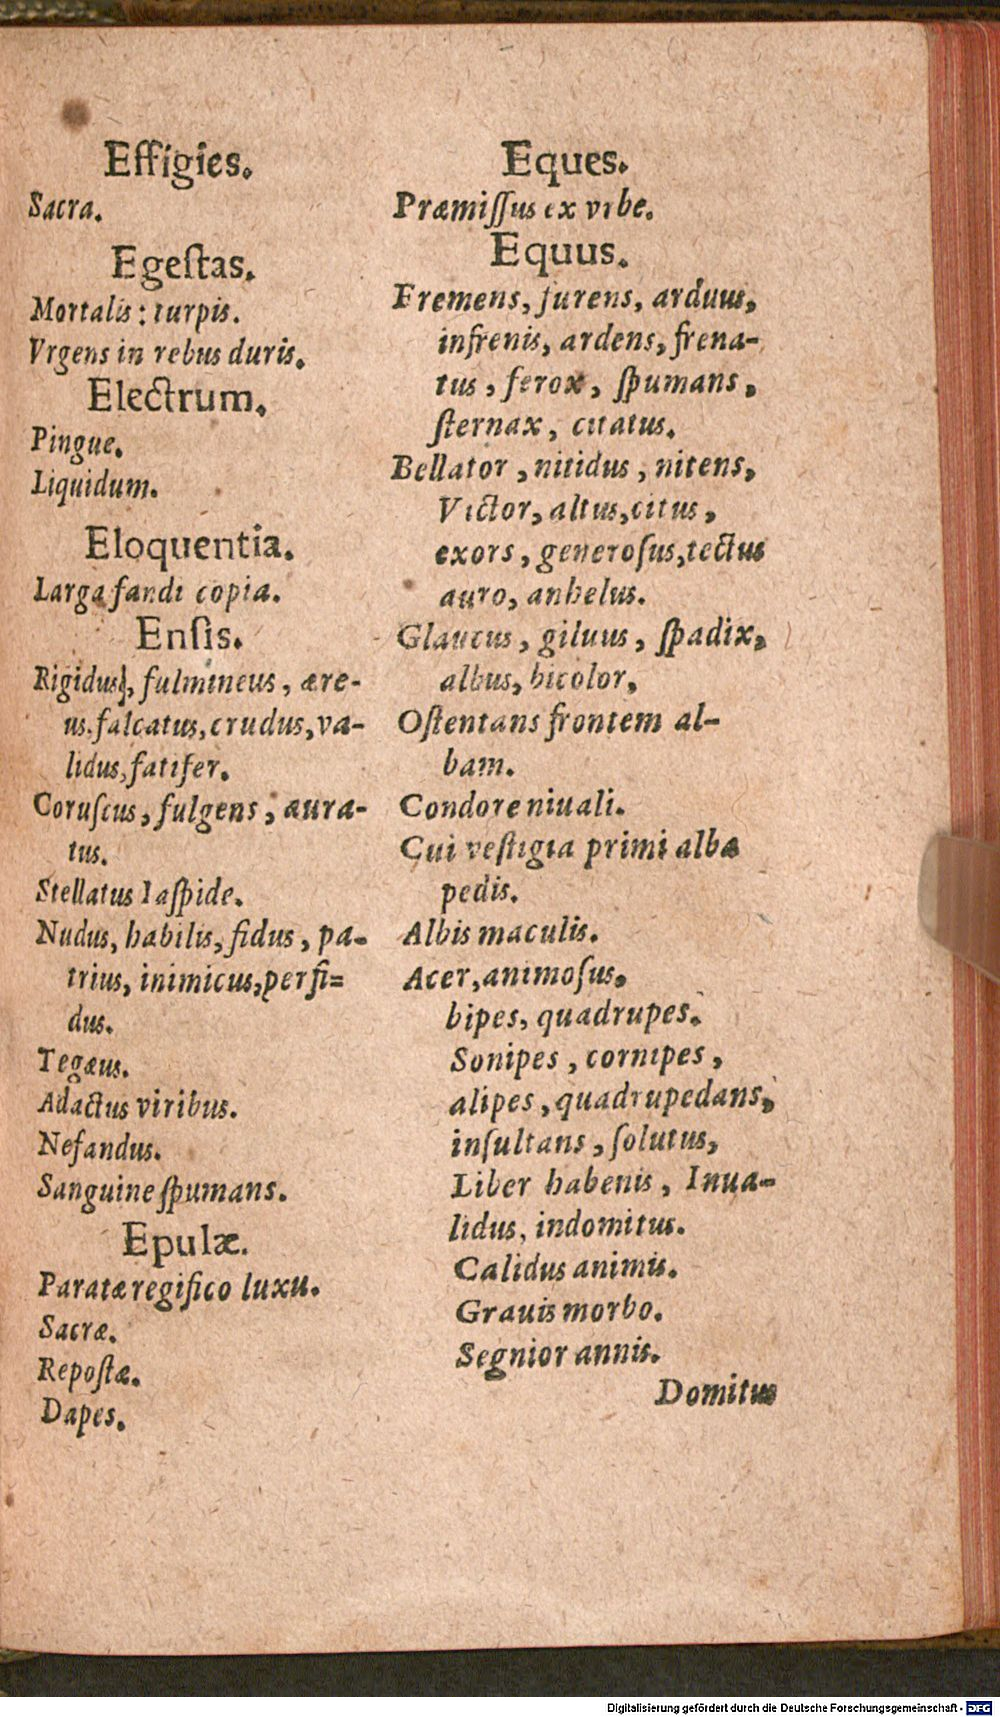 Effigies.
Sacra.
Egeſtas.
Mortalis: turpis.
Vrgens in rebus duris.
Electrum.
Pingue.
Liquidum.
Eloquentia.
Larga fandi copia.
Enſis.
Rigidus, fulmineus, ære-
us. falcatus, crudus, va-
lidus, fatifer.
Coruſcus, fulgens, aura-
tus.
Stellatus Iaſpide.
Nudus, habilis, fidus, pa-
trius, inimicus, perfi-
dus.
Tegæus.
Adactus viribus.
Nefandus.
Sanguine ſpumans.
Epulæ.
Paratæ regifico luxu.
Sacræ.
Repoſtæ.
Dapes.
Eques.
Præmiſſus ex vrbe.
Equus.
Fremens, furens, arduus,
infrenis, ardens, frena-
tus, ferox, ſpumans,
ſternax, citatus.
Bellator, nitidus, nitens,
Victor, altus, citus,
exors, generoſus, tectus
auro, anhelus.
Glaucus, giluus, ſpadix,
albus, bicolor,
Oſtentans frontem al-
bam.
Condore niuali.
Cui veſtigia primi alba
pedis.
Albis maculis.
Acer, animoſus,
bipes, quadrupes.
Sonipes, cornipes,
alipes, quadrupedans,
inſultans, ſolutus,
Liber habenis, Inua-
lidus, indomitus.
Calidus animis.
Grauis morbo.
Segnior annis.
Domitus
Digitalisierung gefördert durch die Deutsche Forschungsgemeinschaft - DFG